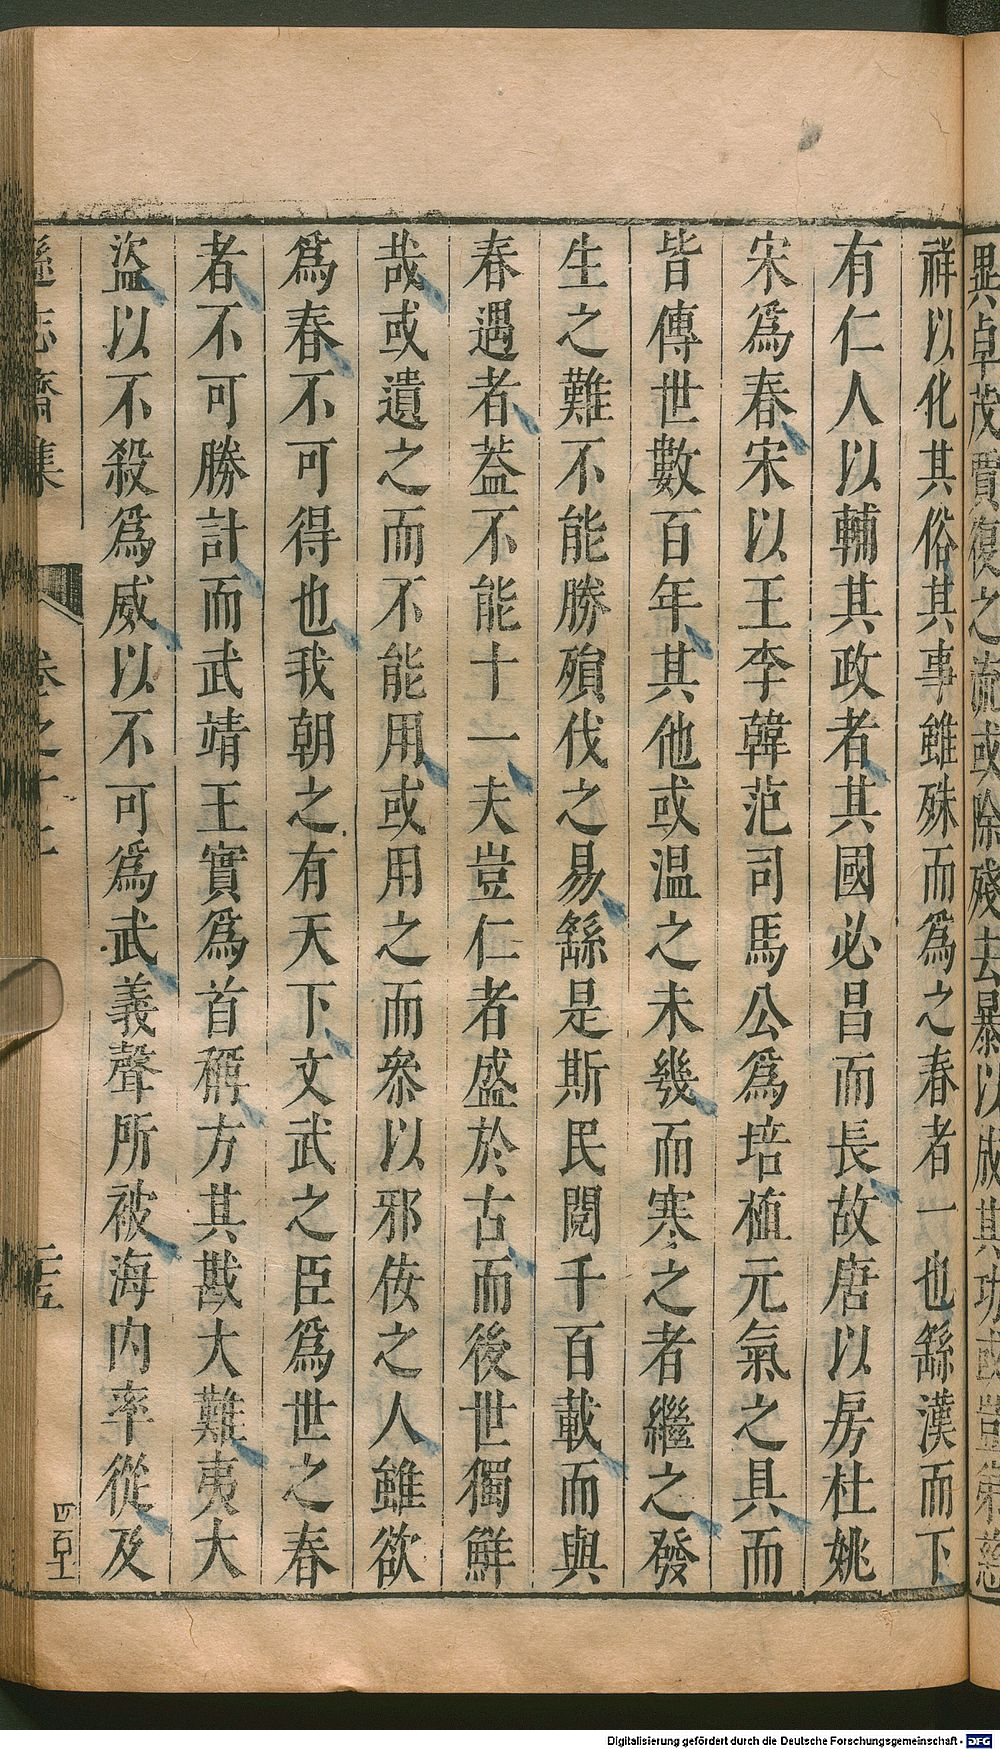 異卓茂賈復之流或除殘去暴以成其功或豈弟慈
祥以化其俗其事雖殊而爲之春者一也繇漢而下
有仁人以輔其政者其國必昌而長故唐以房杜姚
宋爲春宋以王李韓范司馬公爲培植元氣之具而
皆傳世數百年其他或温之未幾而寒之者繼之發
生之難不能勝殞伐之易繇是斯民閱千百載而與
春遇者葢不能十一夫豈仁者盛於古而後世獨鮮
哉或遺之而不能用或用之而叅以邪佞之人雖欲
爲春不可得也我朝之有天下文武之臣爲世之春
者不可勝計而武靖王實爲首稱方其戡大難夷大
盜以不殺爲威以不可爲武義聲所被海内率從及
遜志齋集 卷之十三 二五 四百十
Digitalisierung gefördert durch die Deutsche Forschungsgemeinschaft - DFG